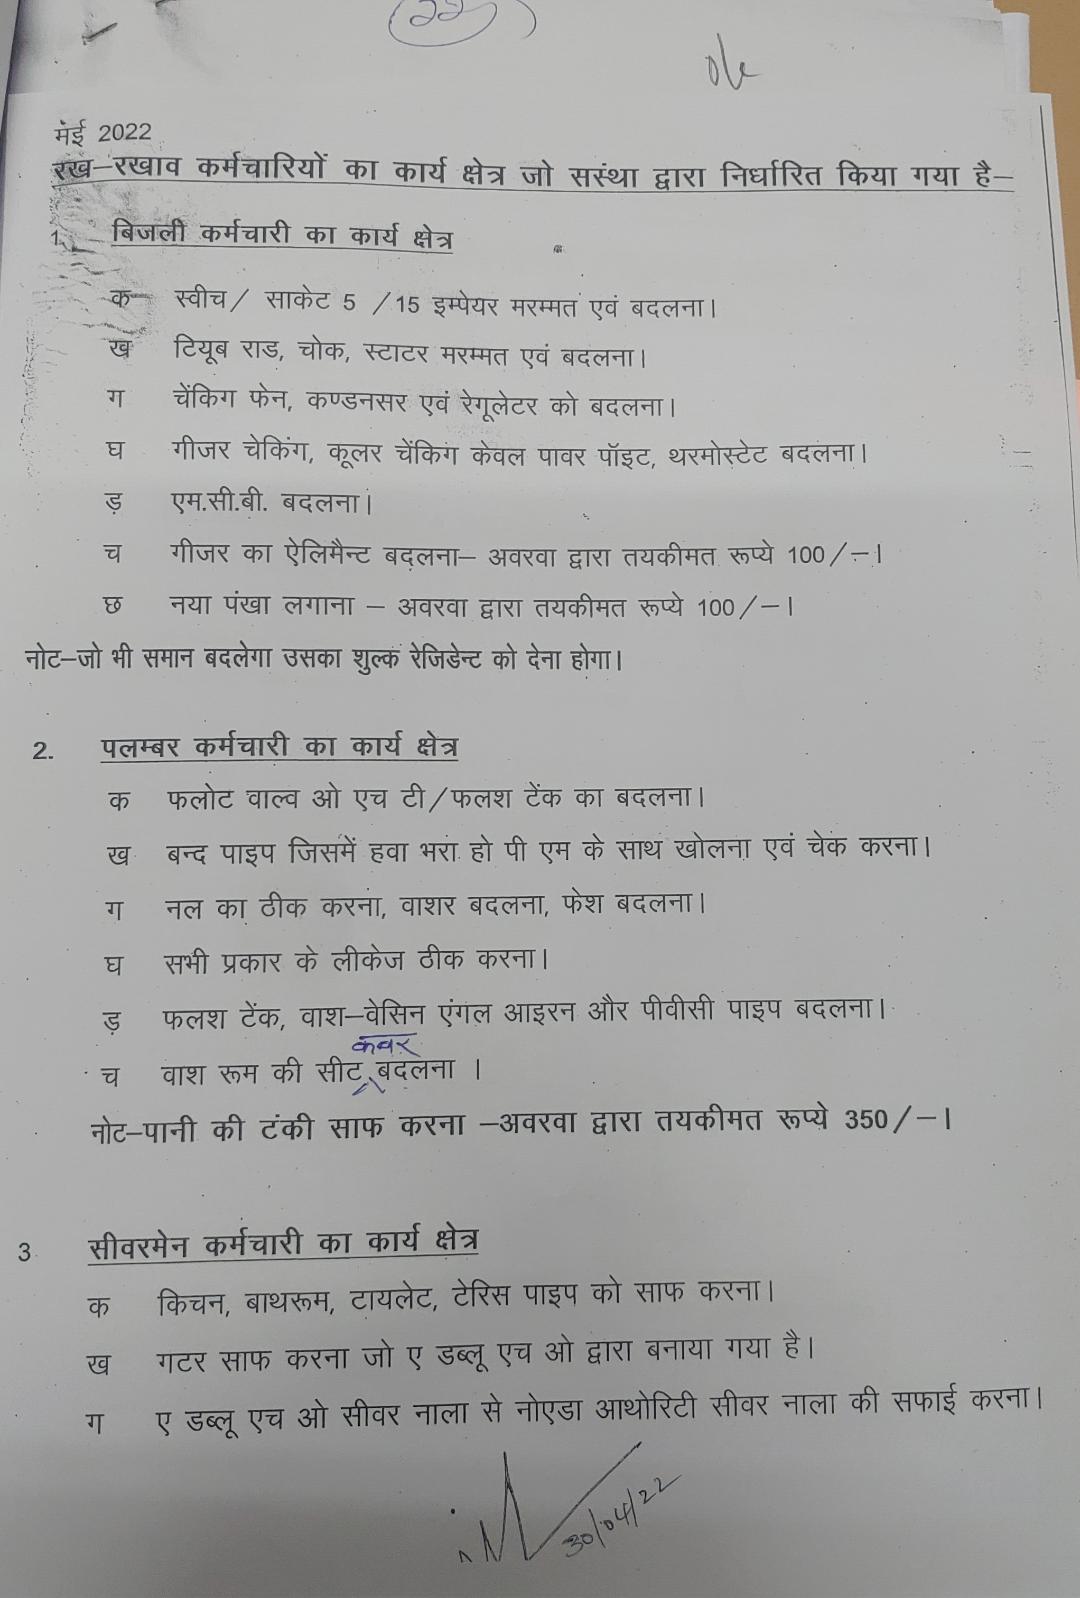 (22)
मंई 2022
रख–रखाव कर्मचारियों का कार्य क्षेत्र जो सस्ंथा द्वारा निर्धारित किया गया है–
1. बिजली कर्मचारी का कार्य क्षेत्र
क स्वीच/ साकेट 5 /15 इम्पेयर मरम्मत एवं बदलना।
ख टियूब राड, चोक, स्टाटर मरम्मत एवं बदलना।
ग चेंकिग फेन, कण्डनसर एवं रेगूलेटर को बदलना।
घ गीजर चेकिंग, कूलर चेंकिग केवल पावर पॉइट, थरमोस्टेट बदलना।
ड़ एम.सी.बी. बदलना।
च गीजर का ऐलिमैन्ट बदलना– अवरवा द्वारा तयकीमत रूप्ये 100/–।
छ नया पंखा लगाना – अवरवा द्वारा तयकीमत रूप्ये 100/–।
नोट–जो भी समान बदलेगा उसका शुल्क रेजिडेन्ट को देना होगा।
2. पलम्बर कर्मचारी का कार्य क्षेत्र
क फलोट वाल्व ओ एच टी/फलश टेंक का बदलना।
ख बन्द पाइप जिसमें हवा भरा हो पी एम के साथ खोलना एवं चेक करना।
ग नल का ठीक करना, वाशर बदलना, फेश बदलना।
घ सभी प्रकार के लीकेज ठीक करना।
ड़ फलश टेंक, वाश–वेसिन एंगल आइरन और पीवीसी पाइप बदलना।
कवर
च वाश रूम की सीट बदलना ।
नोट–पानी की टंकी साफ करना –अवरवा द्वारा तयकीमत रूप्ये 350/–।
3 सीवरमेन कर्मचारी का कार्य क्षेत्र
क किचन, बाथरूम, टायलेट, टेरिस पाइप को साफ करना।
ख गटर साफ करना जो ए डब्लू एच ओ द्वारा बनाया गया है।
ग ए डब्लू एच ओ सीवर नाला से नोएडा आथोरिटी सीवर नाला की सफाई करना।
30/04/22